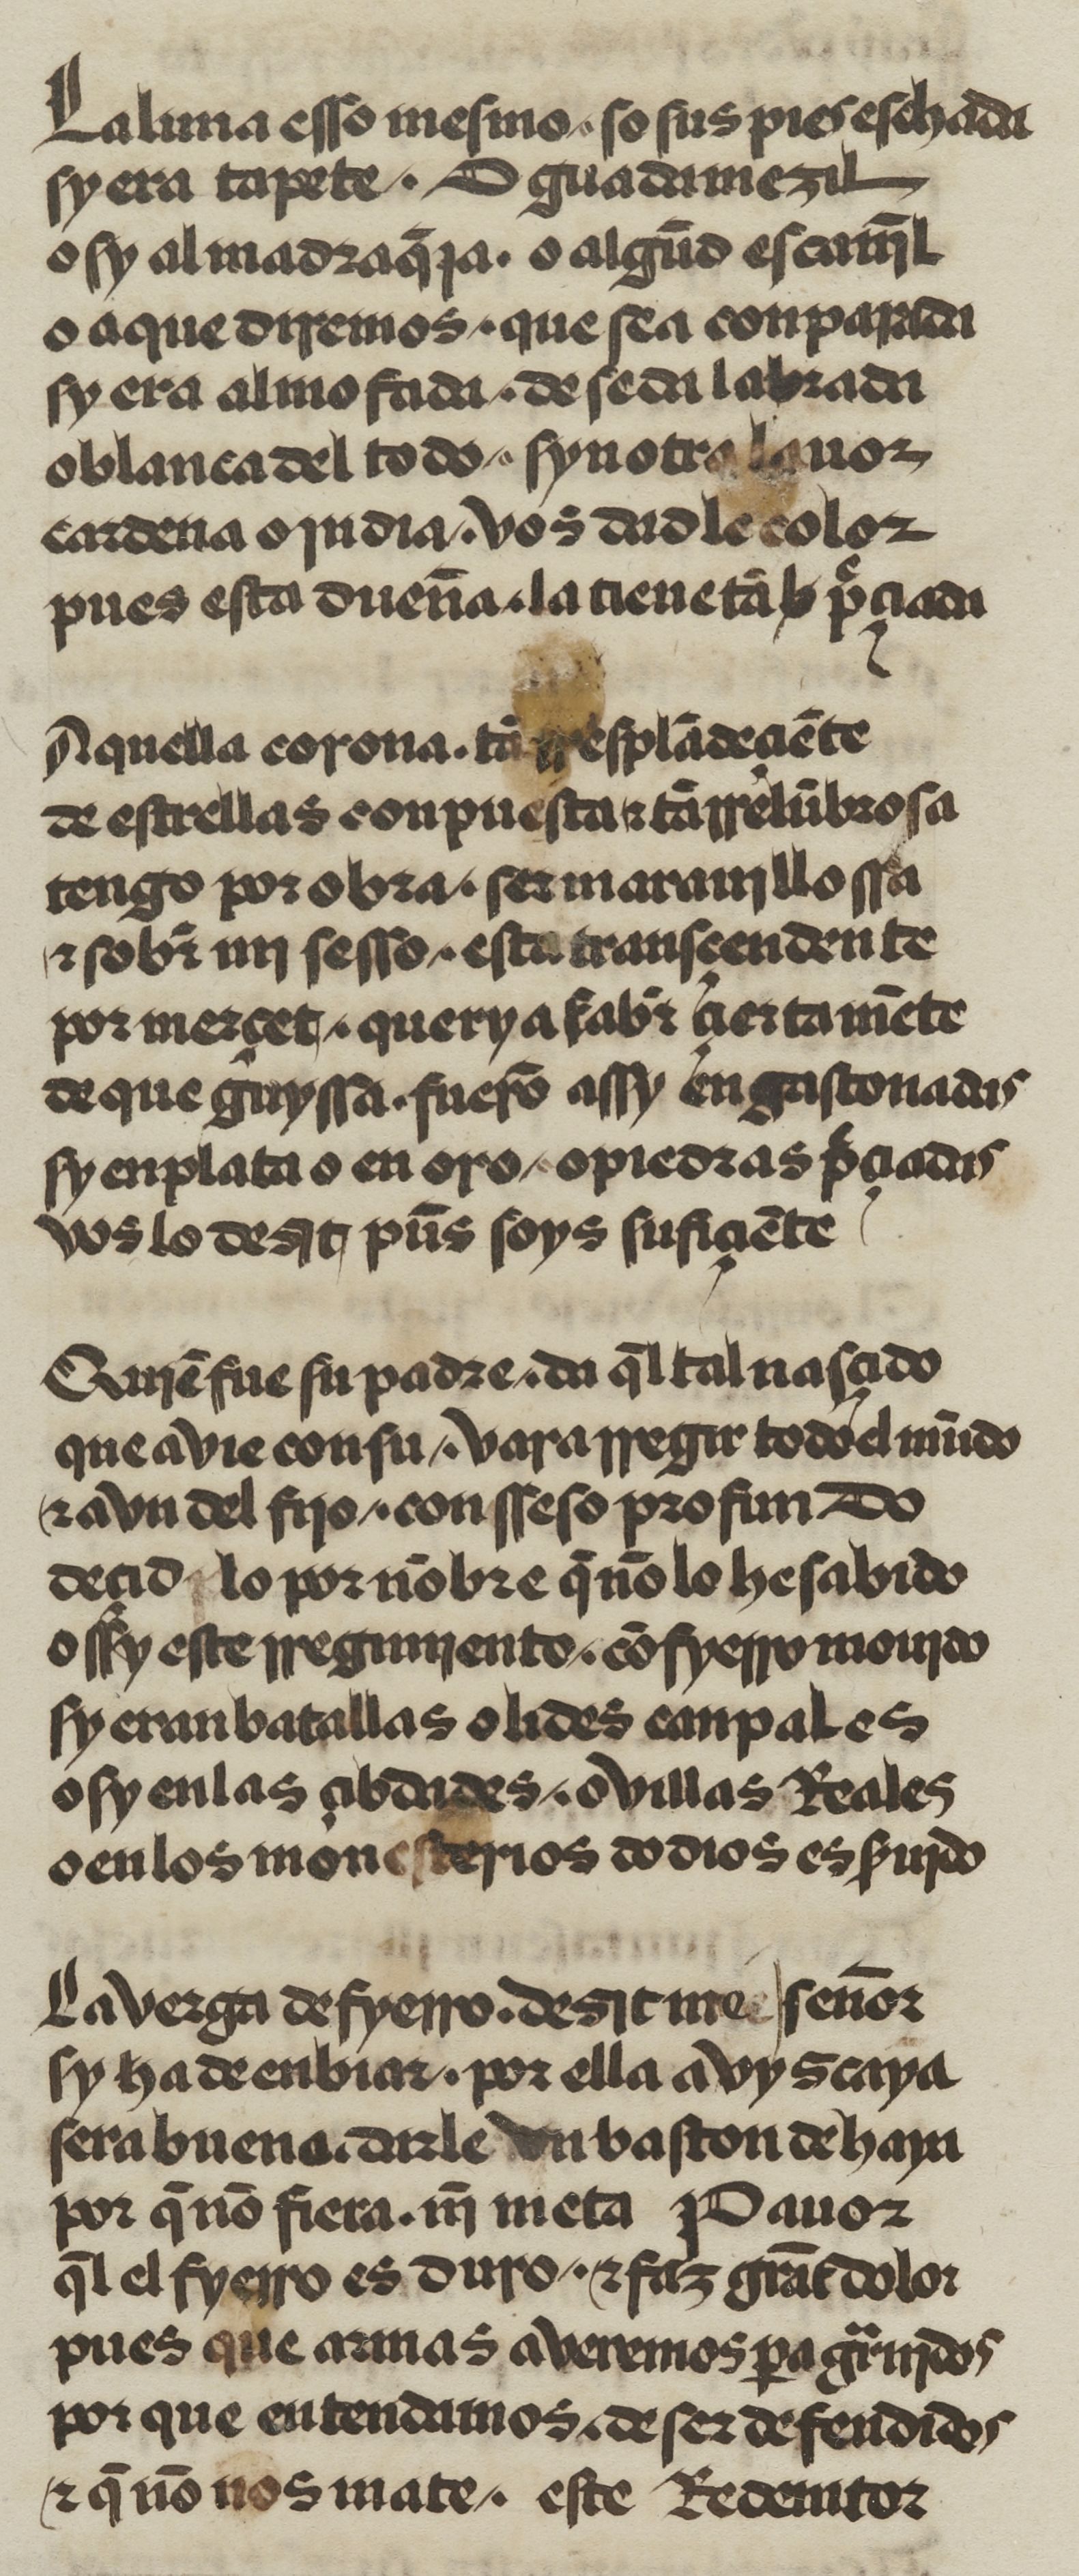 La luna esso mesmo · so sus pies eschada
sy era tapete · O guadamezil
o sy almadraq̄ja · o algūd escanīl
o a que diremos · que sea conparada
sy era almofada · de seda labrada
o blanca del todo · syn otra lauor
cardena o jndia · vos dadle color
pues esta dueña · la tiene tā p̄çiada
Aquella corona · tā rresplādeçiēte
de estrellas conpuesta ⁊ tā rrelūbrosa
tengo por obra · ser maraujllossa
⁊ sobr̄ mj sesso · esta transçendente
por merçet · querya sabr̄ çiertamēte
de que guyssa · fuerō assy engastonadas
sy en plata o en oro · o piedras p̄çiadas
vos lo desit pūs soys sufiçiēte
Qujē fue su padre · da q̄l tal nasçido
que avie con su · vara rregir todo el mūdo
⁊ avn del fijo · con sseso profundo
deçid lo por nōbre q̄ nō lo he sabido
o ssy este rregimjento · cō fyerro moujdo
sy eran batallas o lides canpales
o sy en las çibdades · o villas Reales
o en los monesterios do dios es s̄ujdo
La verga de fyerro · desit me señor
sy ha de enbiar · por ella a vyscaya
sera bueno · darle vn baston de haya
por q̄ nō fiera · nj̄ meta Pauor
q̄l el fyerro es duro · ⁊ faz grāt dolor
pues que armas averemos pa gr̄njdos
por que entendamos · de ser defendidos
⁊ q̄ nō nos mate · este Redemtor